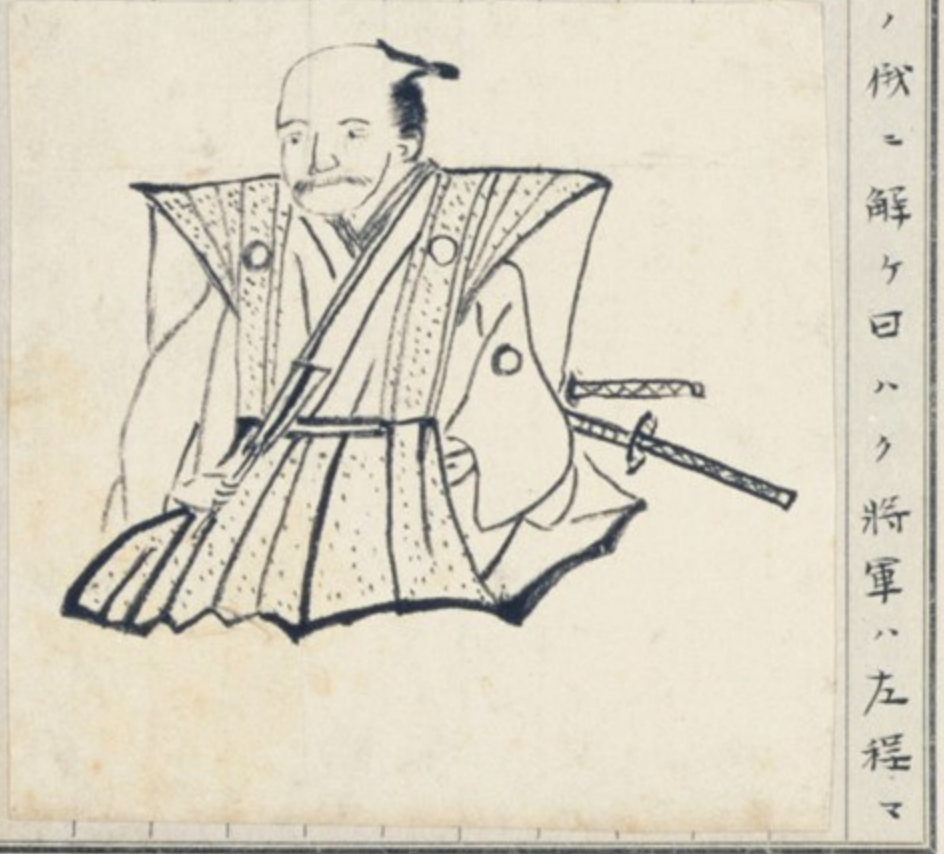 ノ俄ニ解ケ曰ハク將軍ハ左程マ